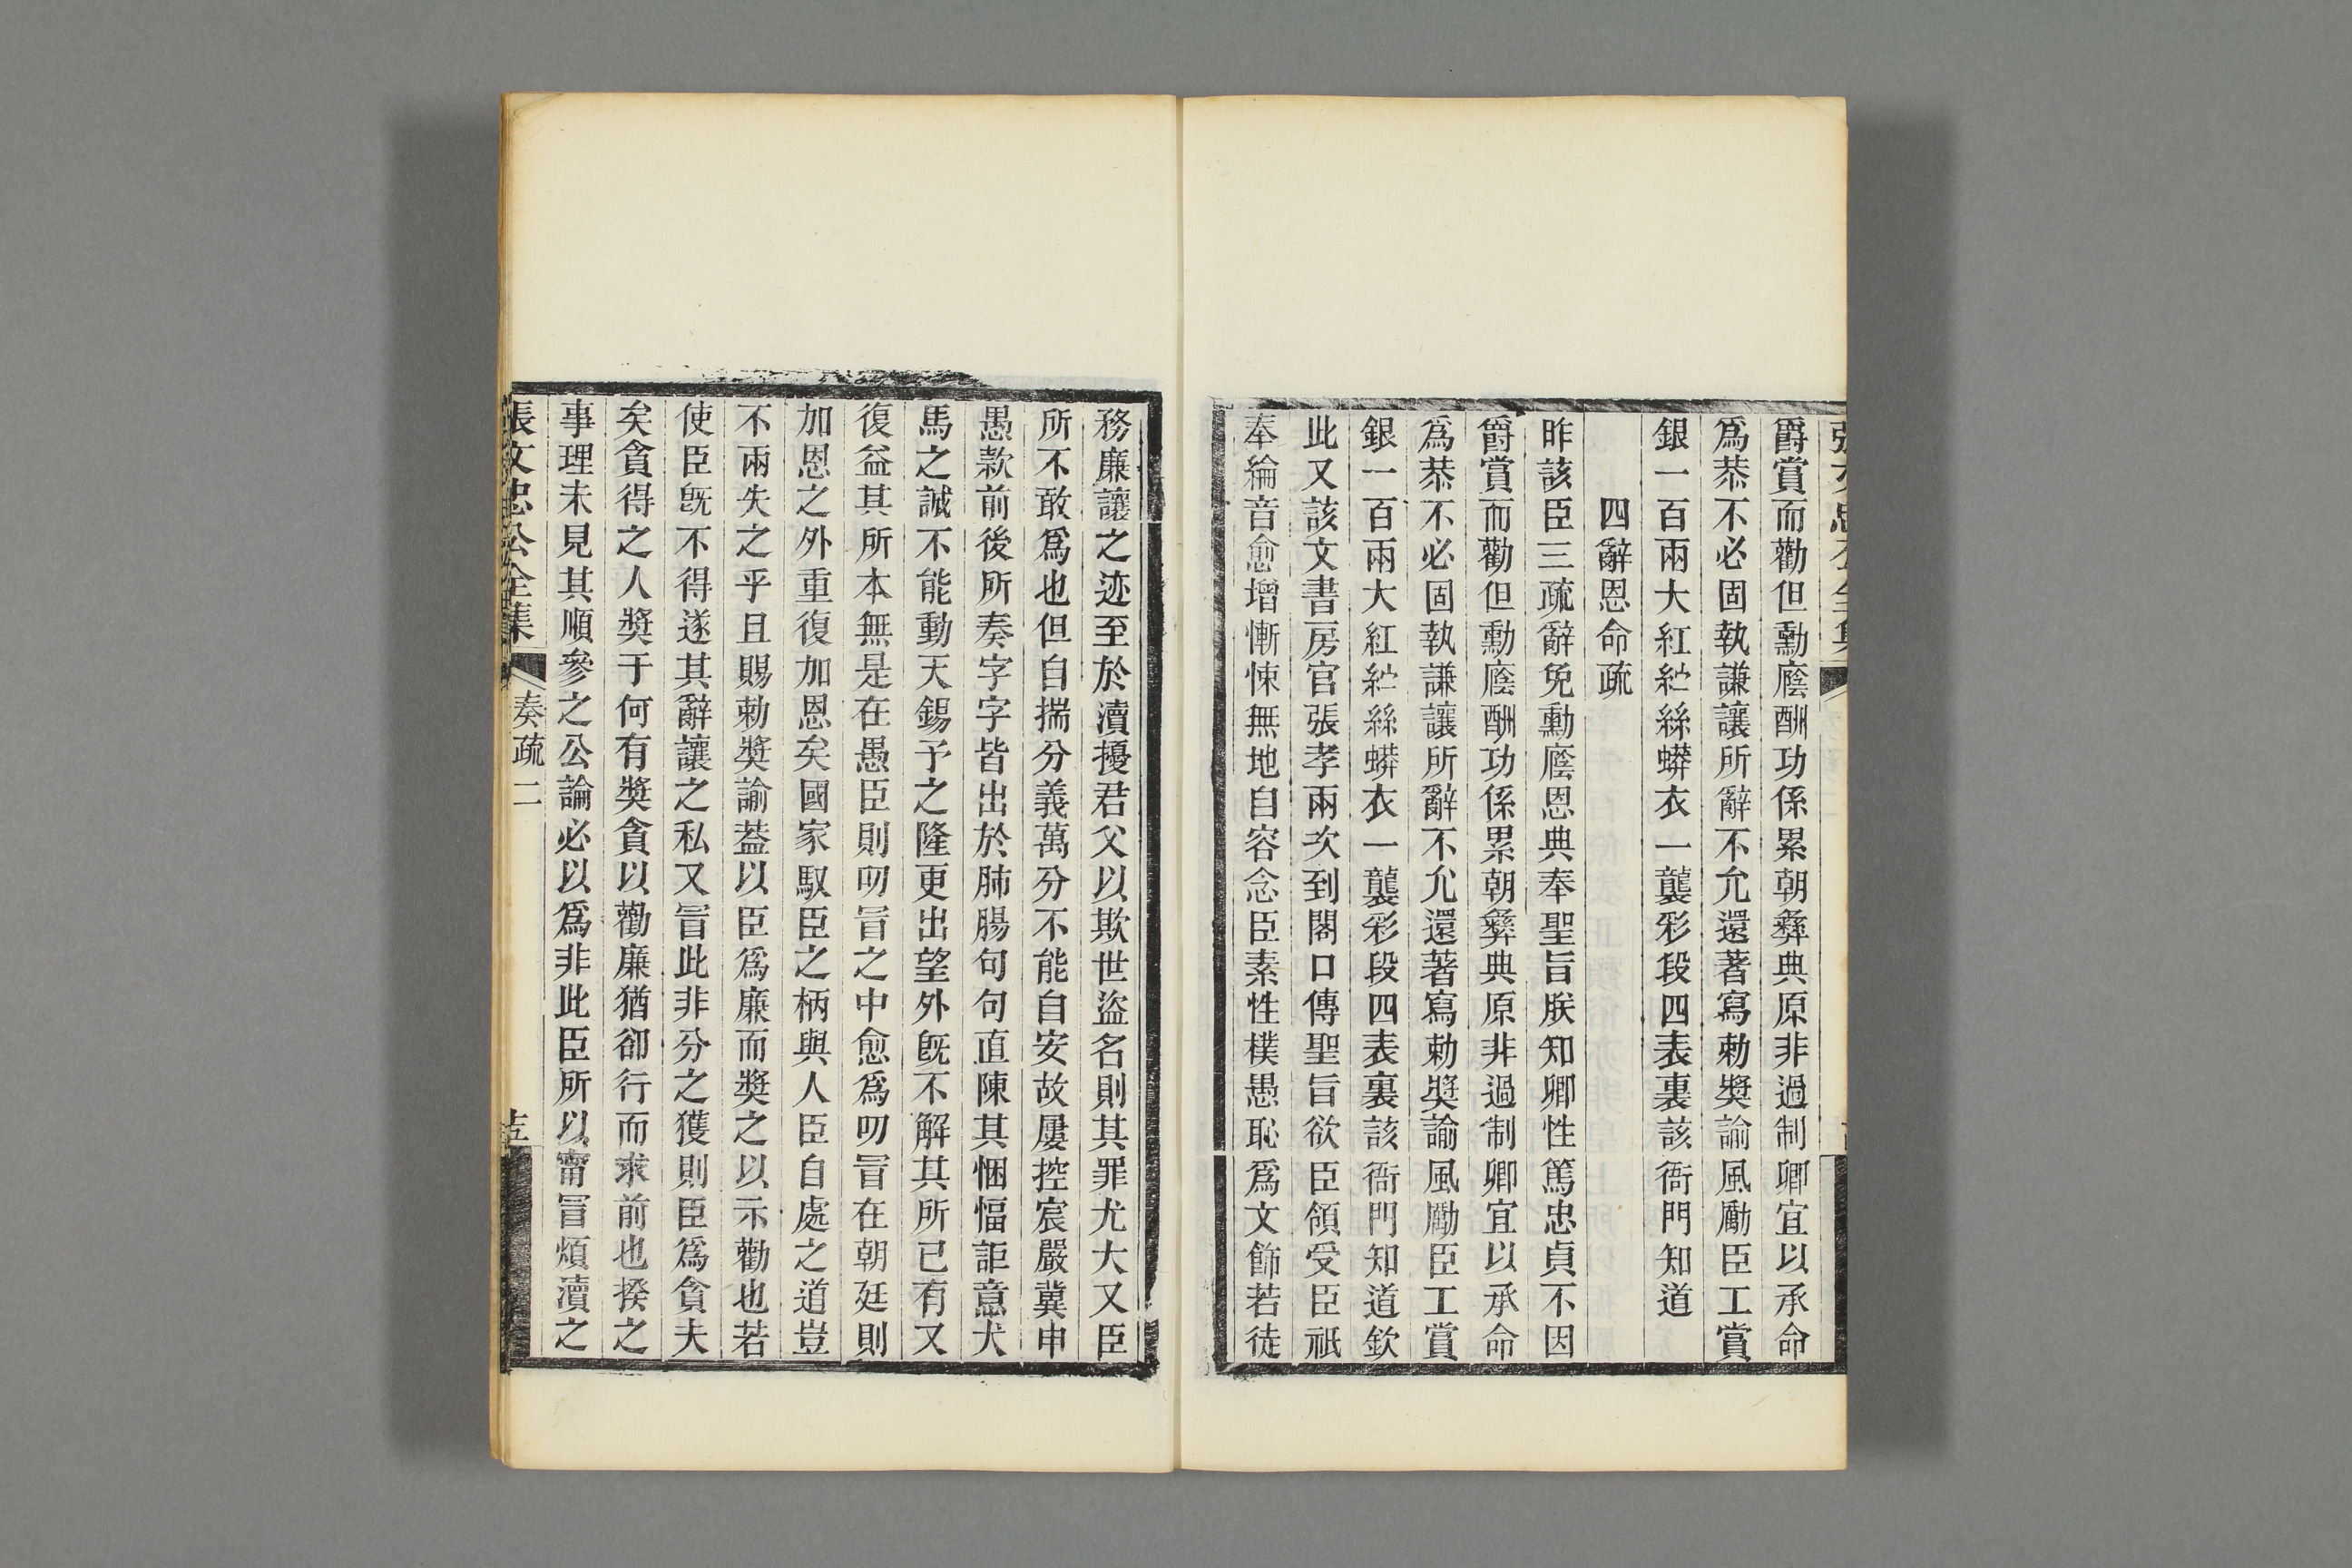 爵賞而勸但勳廕酬功係累朝彞典原非過制卿宜以承命
爲恭不必固執謙讓所辭不允還著寫勅奬諭風勵臣工賞
銀一百兩大紅紵絲蟒衣一襲彩段四表裏該衙門知道
四辭恩命疏
昨該臣三疏辭免勳廕恩典奉聖旨朕知卿性篤忠貞不因
爵賞而勸但勳廕酬功係累朝彞典原非過制卿宜以承命
爲恭不必固執謙讓所辭不允還著寫勅奬諭風勵臣工賞
銀一百兩大紅紵絲蟒衣一襲彩段四表裏該衙門知道欽
此又該文書房官張孝兩次到閣口傳聖旨欲臣領受臣祇
奉綸音愈增慚悚無地自容念臣素性樸愚恥爲文飾若徒
務廉讓之迹至於瀆擾君父以欺世盜名則其罪尤大又臣
所不敢爲也但自揣分義萬分不能自安故屢控宸嚴冀申
愚款前後所奏字字皆出於肺腸句句直陳其悃愊詎意犬
馬之誠不能動天錫予之隆更出望外旣不解其所已有又
復益其所本無是在愚臣則叨冒之中愈爲叨冒在朝廷則
加恩之外重復加恩矣國家馭臣之柄與人臣自處之道豈
不兩失之乎且賜勅奬諭葢以臣爲廉而奬之以示勸也若
使臣旣不得遂其辭讓之私又冒此非分之獲則臣爲貪夫
矣貪得之人奬于何有奬貪以勸廉猶卻行而求前也揆之
事理未見其順參之公論必以爲非此臣所以甯冒煩瀆之
張文忠公全集 奏疏二 十五